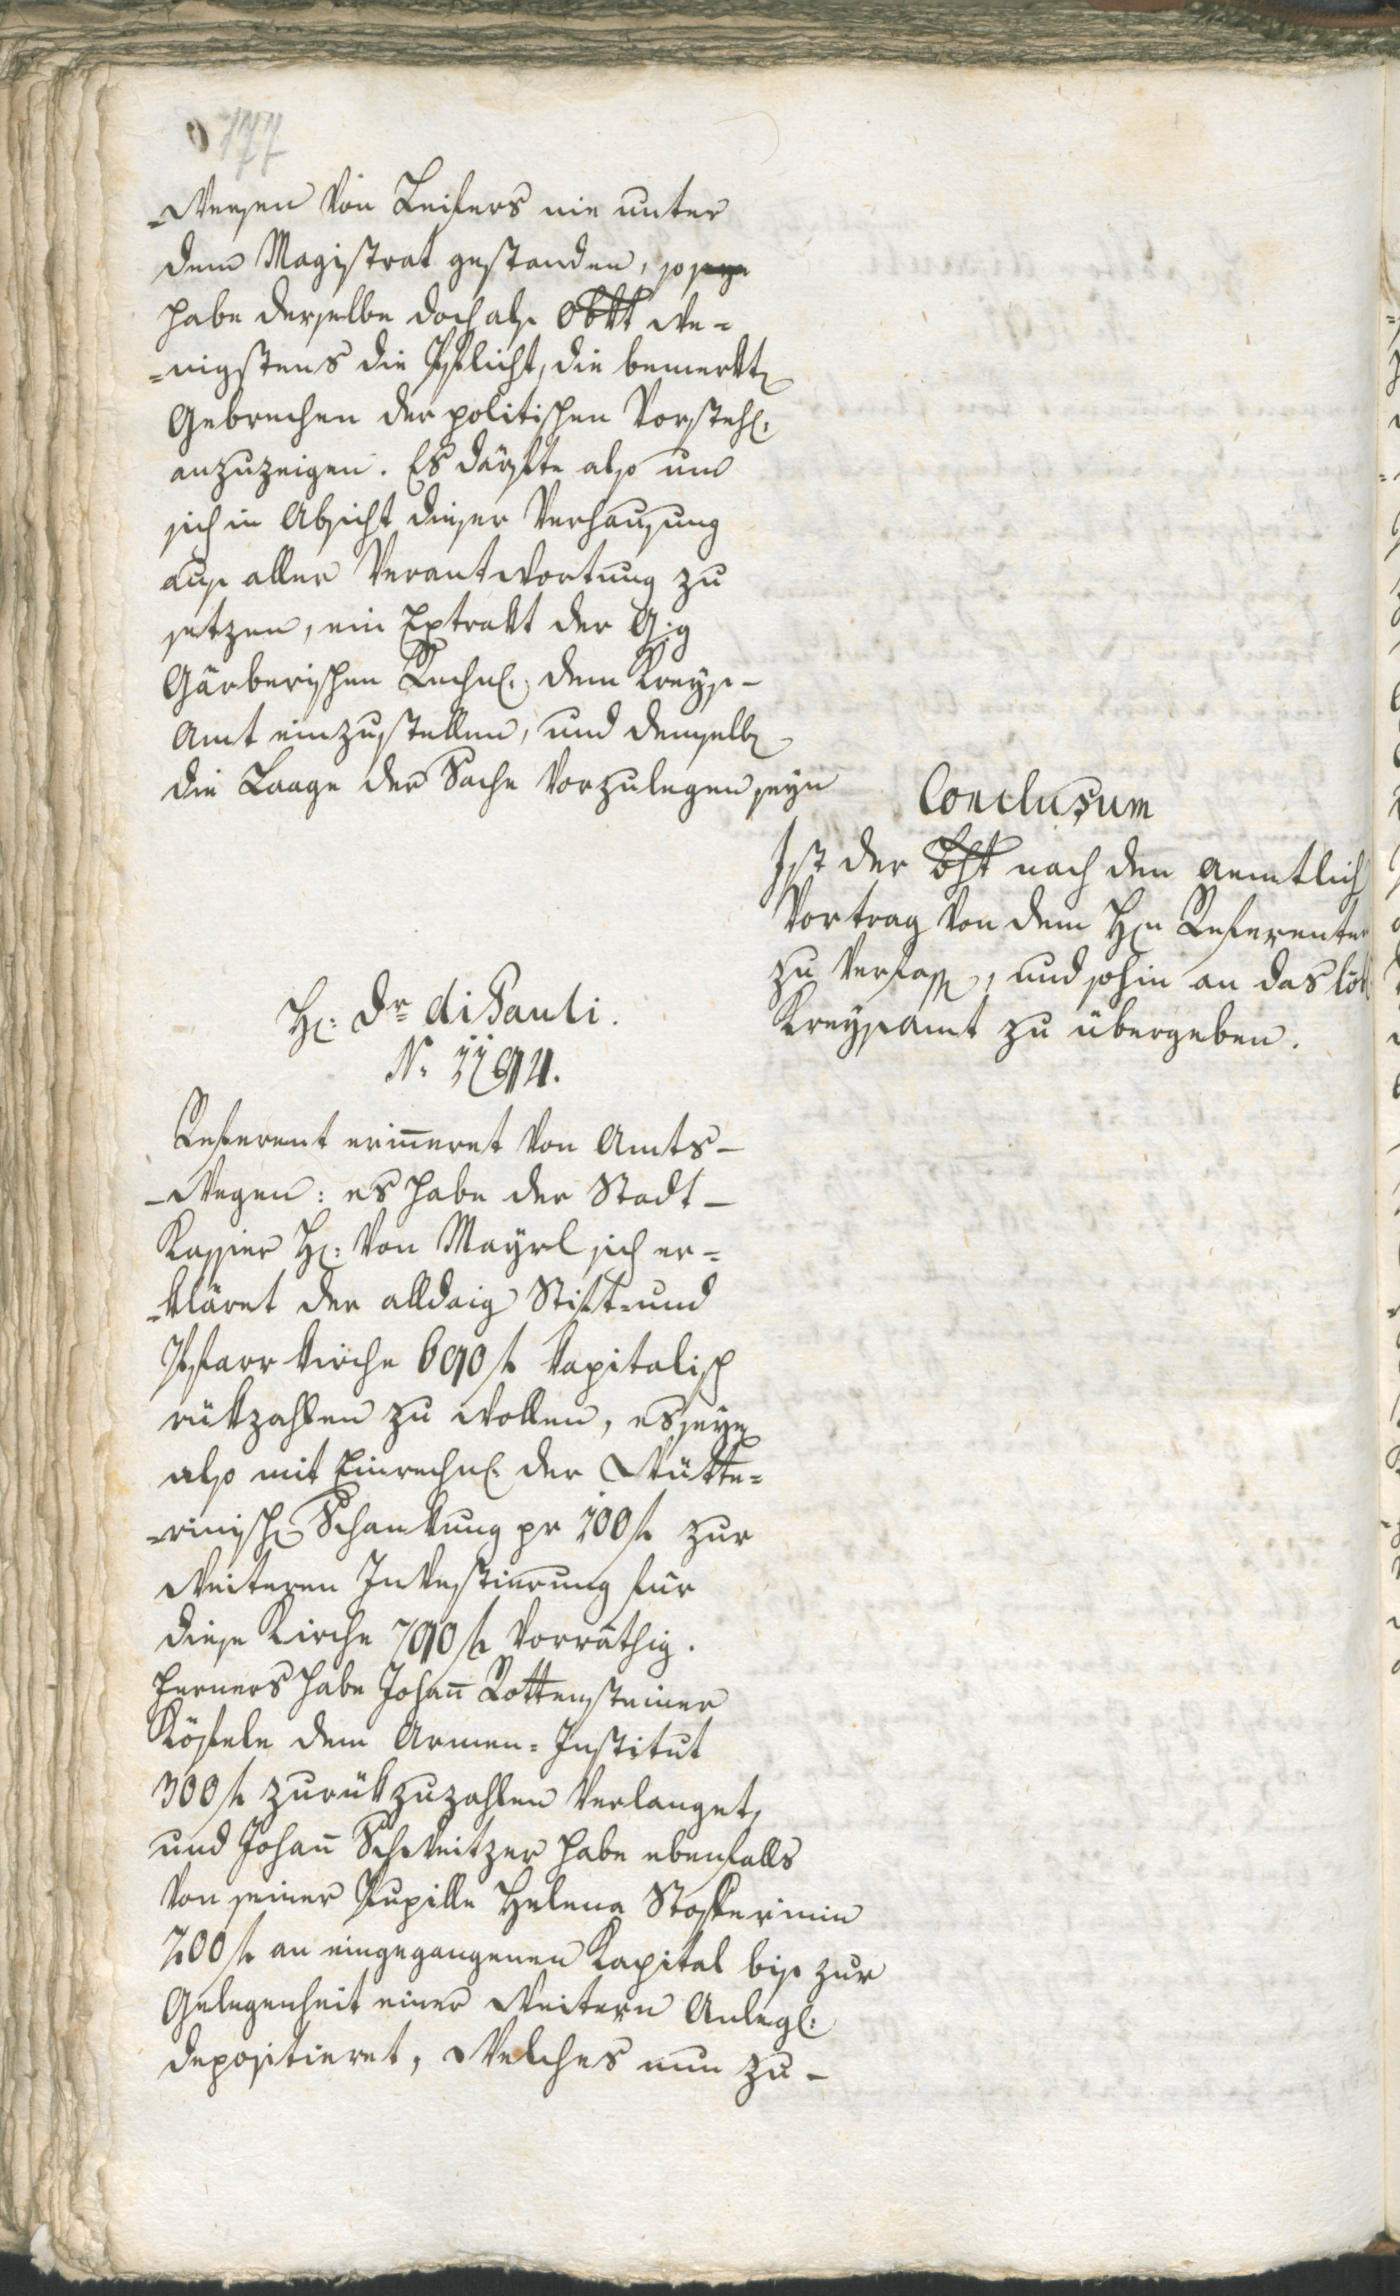 177
-Wesen von Leifers nie unter
dem Magistrat gestanden, so
habe derselbe doch als Obkt we-
-nigstens die Pflicht, die bemerkt
Gebrechen der politischen Vorsteh:
anzuzeigen. Es därfte also um
sich in Absicht dieser Verhausung
aus aller Verantwortung zu
setzen, ein Extrakt der G:g
Gärberischen Rechn: dem Kreys-
Amt einzustellen, und demselb
die Laage der Sache vorzulegen seyn
Conclusum
Ist der nach den aemtlich
Vortrag von dem Hn Referenten
zu verfass, und sohin an das löb
Kreysamt zu übergeben.
H: Dr di Pauli.
N: 1294.
Referent erinneret von Amts-
-Wegen: es habe der Stadt-
Kassier H: von Mayrl sich er-
-kläret der alldaig Stift- und
Pfarrkirche 690 f Kapitalisch
rükzahlen zu wollen, es seye
also mit Einrechn: der Mütte-
-rinisch Schankung pr 100 f zur
weiteren Investierung für
diese Kirche 790 f vorräthig.
Ferners habe Johann Rottensteiner
Köfele dem Armen-Institut
300 f zurükzuzahlen verlanget,
und Johann Schweitzer habe ebenfalls
von seiner Pupille Helena Stofferinin
200 f an eingegangenen Kapital bis zur
Gelegenheit einer weitern Anleg:
depositieret, welches nun zu-